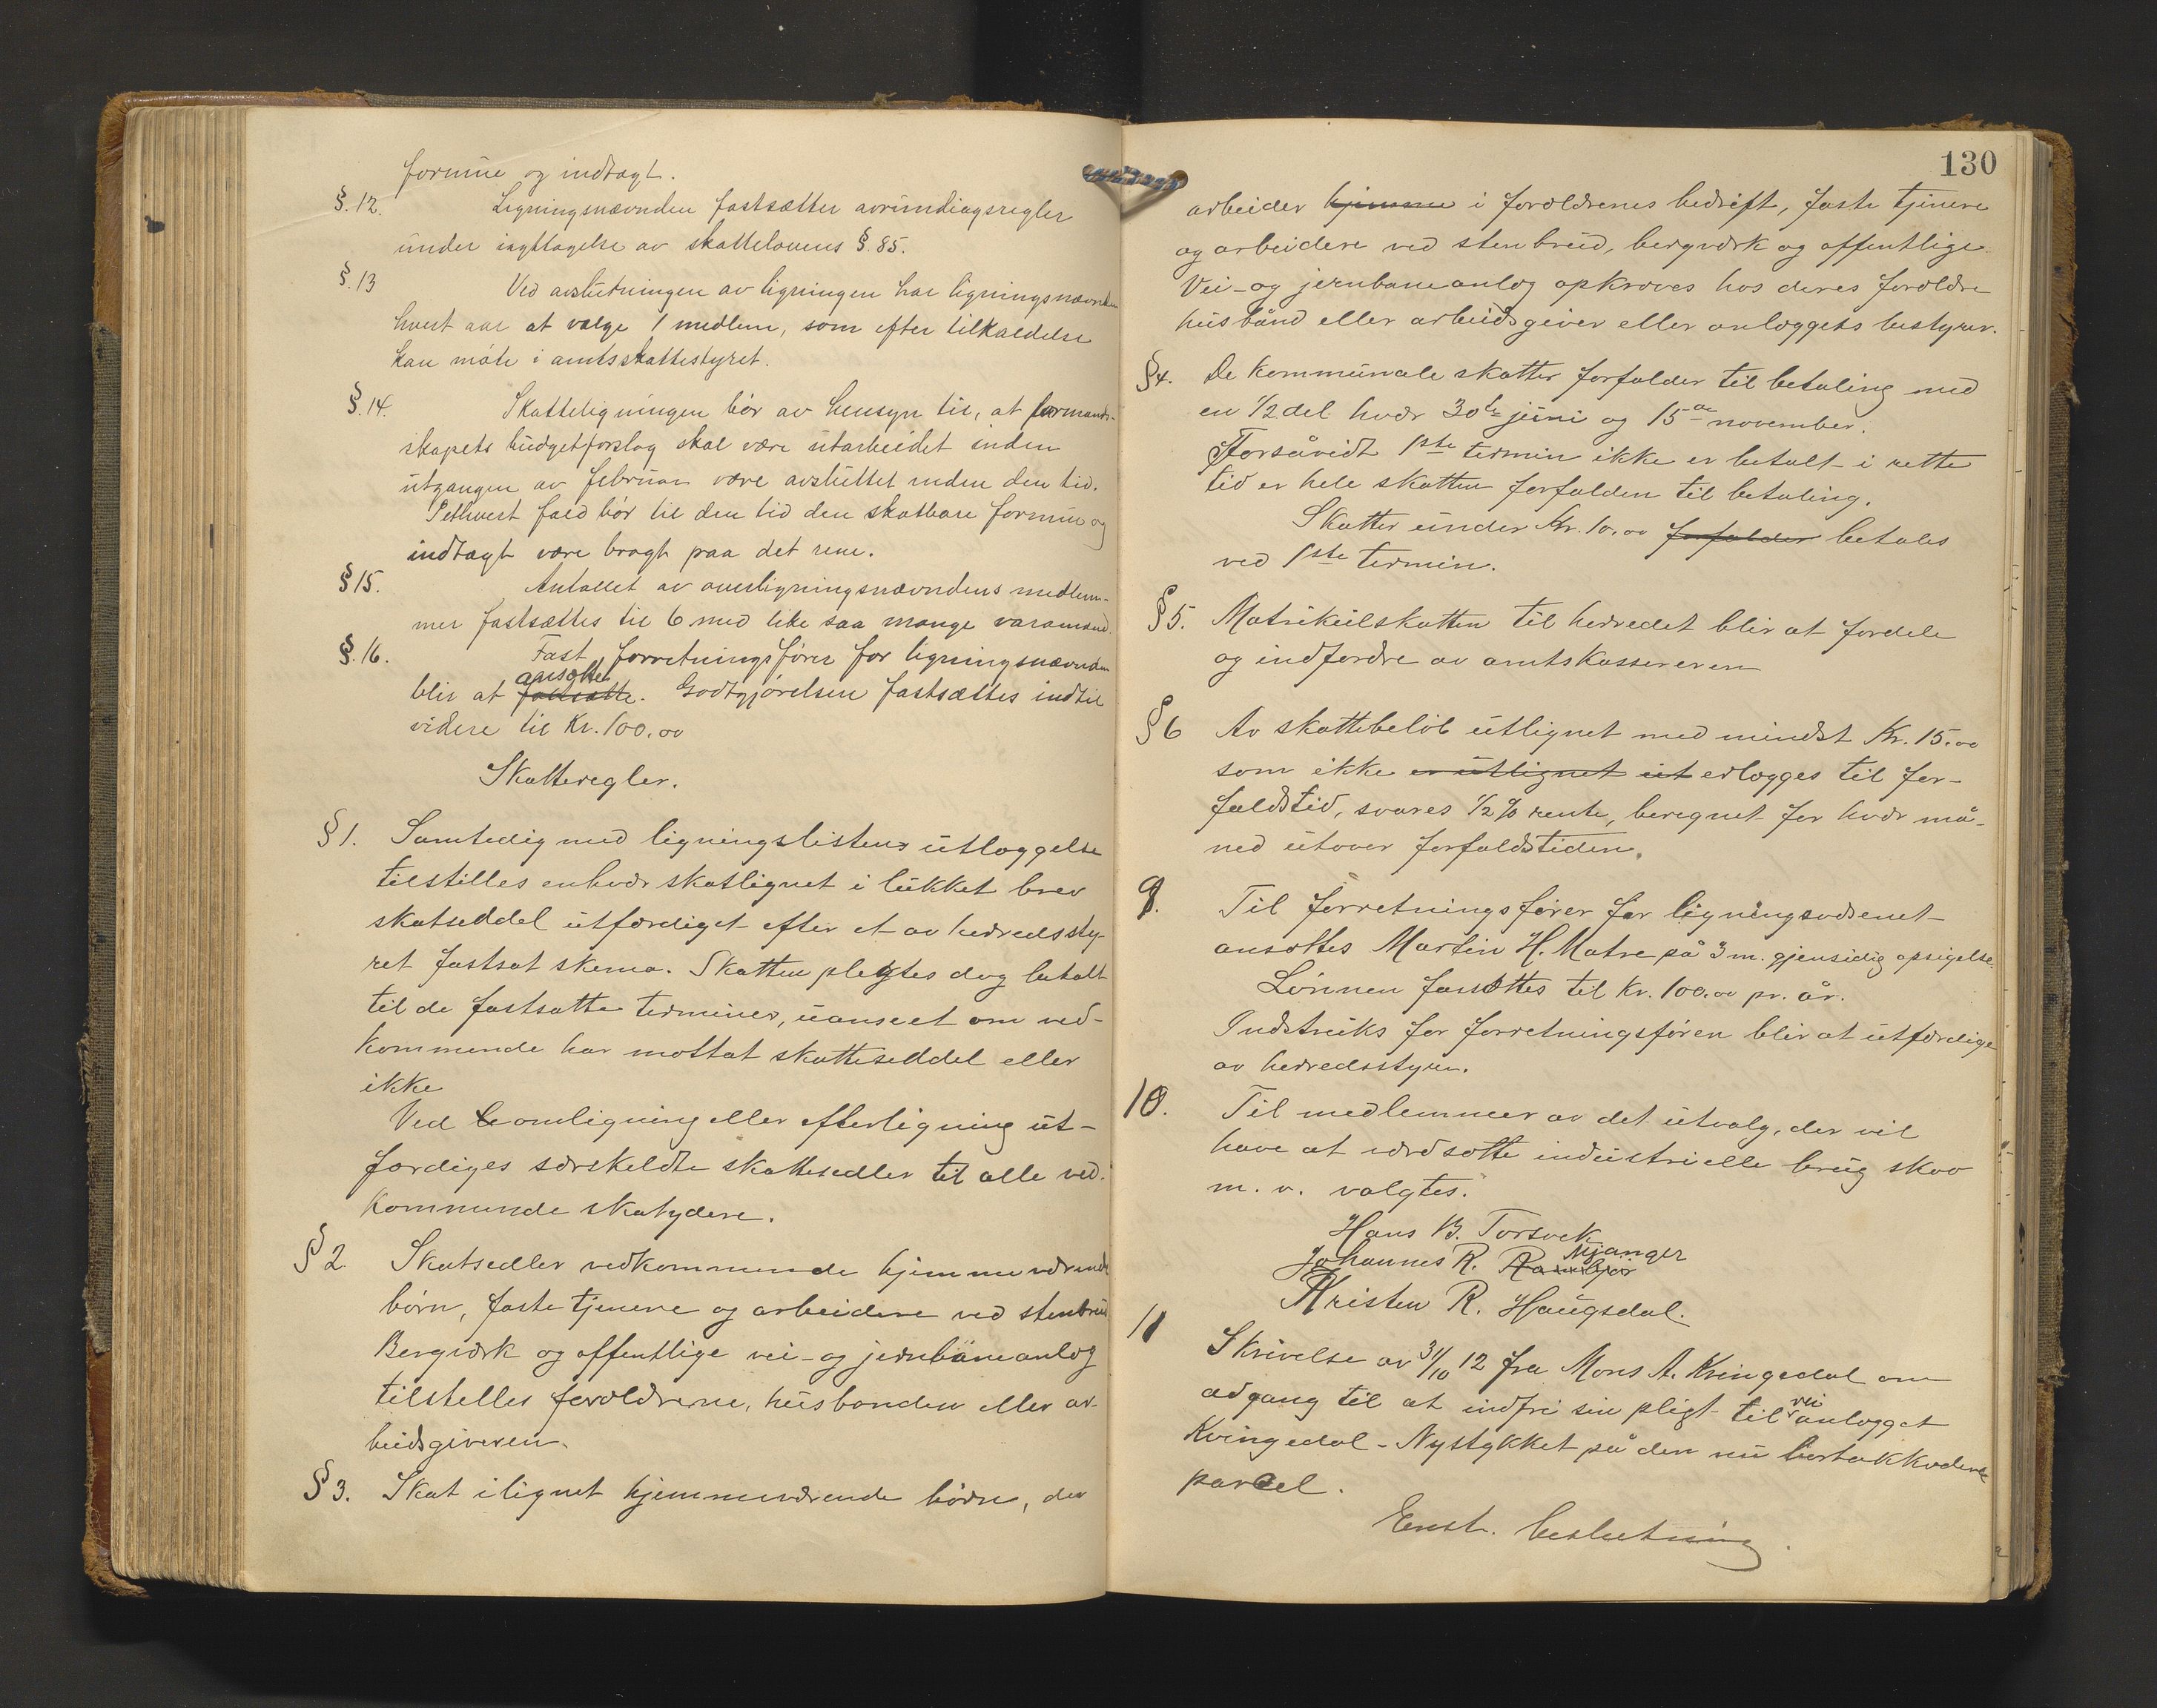 formue og indtægt.
§.12. Ligningsnævnden fastsætter avrundingsregler
under iagttagelse av skattelovens §.85.
§.13 Ved avslutningen av ligningen har ligningsnævnden
hvert aar at vælge 1 medlem, som efter tilkaldelse
kan møte i amtsskattestyret.
§.14. Skatteligningen bør av hensyn til, at formand-
skapets budgetforslag skal være utarbeidet inden
utgangen av februar være avsluttet inden den tid.
I ethvert fald bør til den tid den skatbare formue og
indtægt være bragt paa det rene.
§15. Antallet av overligningsnævndens medlem-
mer fastsættes til 6 med like saa mange varamænd.
§.16. Fast forretningsfører for ligningsnævnden
ansætte
blir at fastsætte. Godtgjørelsen fastsættes indtil
videre til Kr. 100.00
Skatteregler.
§1. Samtidig med ligningslistens utlæggelse
tilstilles enhver skatlignet i lukket brev
skatseddel utfærdiget efter et av herredssty-
ret fastsat skema. Skatten pligtes dog betalt
til de fastsatte terminer, uanseet om ved-
kommende har mottat skatteseddel eller
ikke
Ved omligning eller efterligning ut-
færdiges særskeldte skattesedler til alle ved-
kommende skatydere.
§2 Skatsedler vedkommende hjemmeværende
børn, faste tjenere og arbeidere ved stenbrud
Bergværk og offentlige vei- og jernbaneanlæg
tilstelles forældrerne, husbonden eller ar-
beidsgiveren.
§3. Skat ilignet hjemmeværende børn, der
130
arbeider hjemme i forældrenes bedrift, faste tjenere
og arbeidere ved stenbrud, bergværk og offentlige
Vei- og jernbaneanlæg opkræves hos deres forældre
husbånd eller arbeidsgiver eller anlæggets bestyrer.
§4. De kommunale skatter forfalder til betaling med
en 1/2 del hvær 30te juni og 15de november.
Forsåvidt 1ste termin ikke er betalt i rette
tid er hele skatten forfalden til betaling.
Skatter under Kr. 10.00 forfalder betales
ved 1ste termin.
§5. Matrikulskatten til herredet blir at fordele
og indfordre av amtskassereren
§6 Av skattebeløb utlignet med mindst Kr. 15.00
som ikke er utlignet ut erlægges til for-
faldstid, svares 1/2 % rente, beregnet for hvær må-
ned utover forfaldstiden.
9. Til forretningsfører for ligningsvæsenet
ansættes Martin H. Matre på 3 m. gjensidig opsigelse.
Lønnen fassættes til Kr. 100.00 pr. år.
Indstruks for forretningsføren blir at utfærdige
av herredsstyre.
10. Til medlemmer av det utvalg, der vil
have at værdsætte industrielle brug skov
m. v. valgtes.
Hans B. Torsvik
Mjanger
Johannes R.
Kristen R. Haugsdal.
11 Skrivelse av 31/10 12 fra Mons A. Kvingedal om
vei
adgang til at indfri sin pligt til anlægget
Kvingedal - Nystykket på den nu bortakkoderte
parcel.
Enst. beslutning.